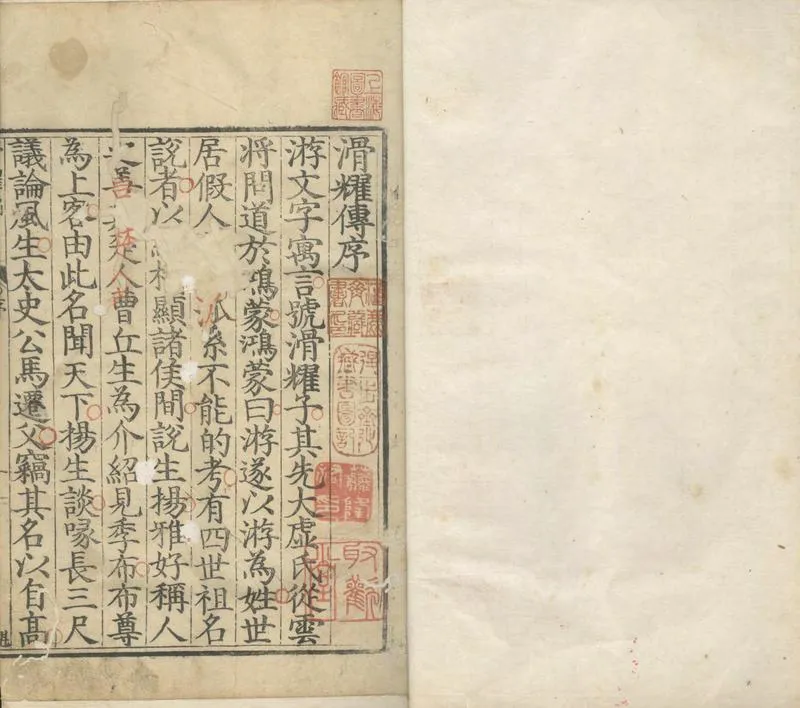 上海圖書館藏
滑耀傳序
游文字寓言號滑耀子其先大虛氏從雲
將問道於鴻蒙鴻蒙曰游遂以游為姓世
居假人派系不能的考有四世祖名
說者以相顯諸侯間說生揚雅好稱人
之善楚人曹丘生為介紹見季布布尊
為上客由此名聞天下揚生談喙長三尺
議論風生太史公馬遷父竊其名以自高